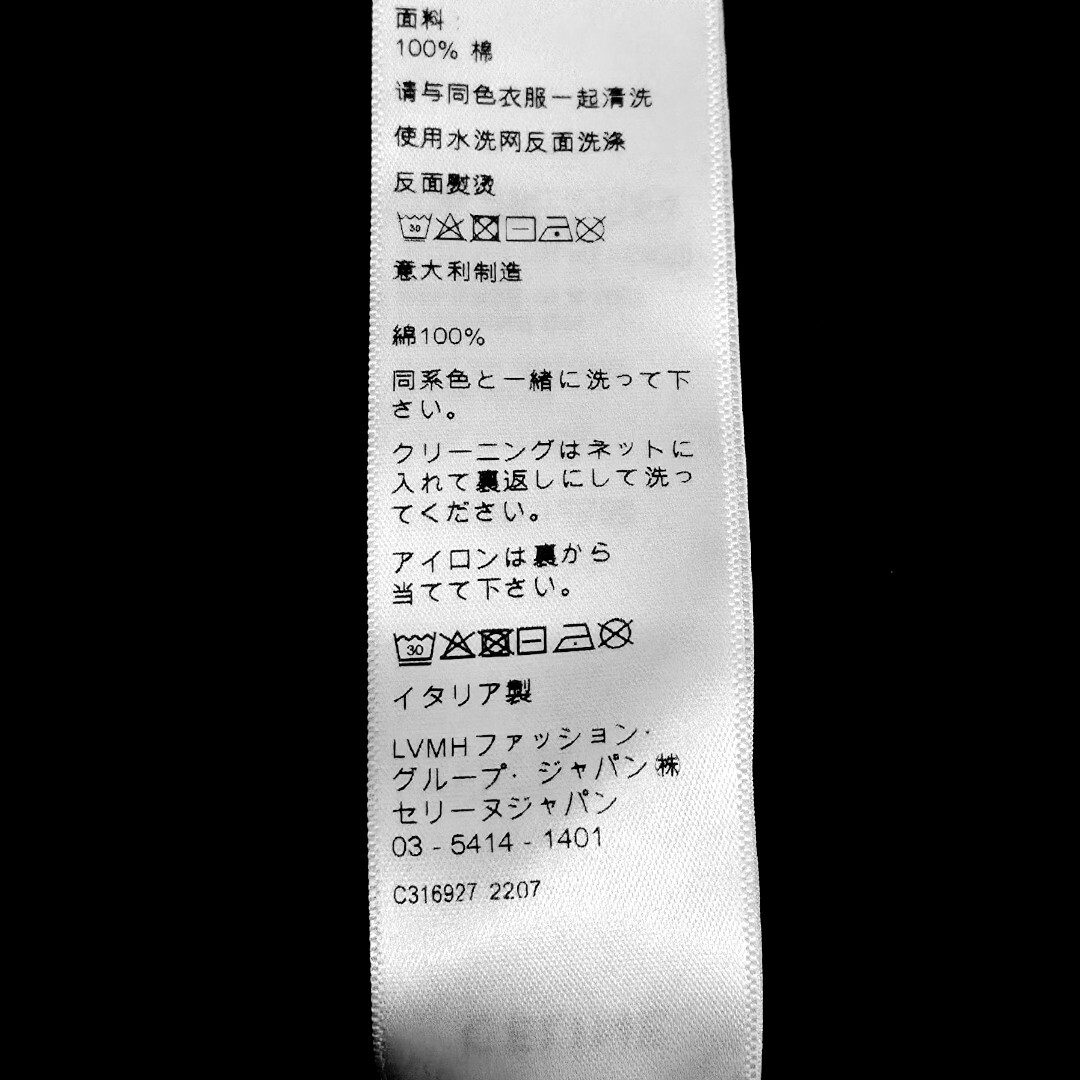 面料
100% 棉
请与同色衣服一起清洗
使用水洗网反面洗涤
反面熨烫
30
意大利制造
綿100%
同系色と一緒に洗って下
さい。
クリーニングはネットに
入れて裏返しにして洗っ
てください。
アイロンは裏から
当てて下さい。
30
イタリア製
LVMHファッション·
グループ· ジャパン㈱
セリーヌジャパン
03 - 5414 - 1401
C316927 2207